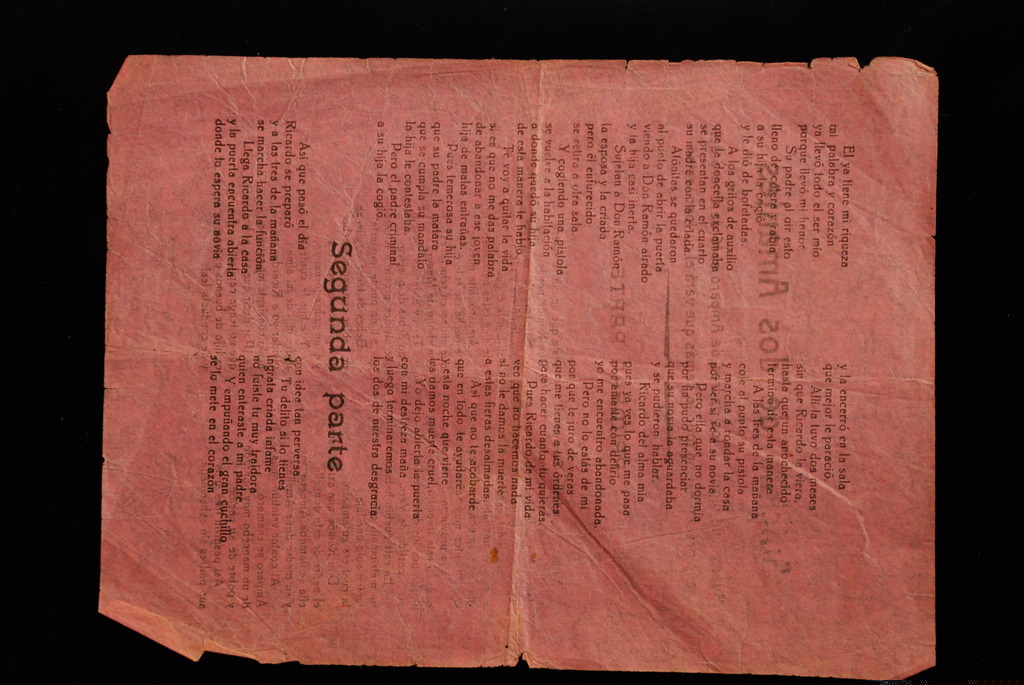 El ya tiene mi riqueza
mi palabra y corazón
ya llevó todo el ser mio
porque llevó mi honor.
Su padre al oir esto
lleno de cólera y rabia
a su hija
y le dió de bofetadas.
A los gritos de auxilio
que la doncella exclamaba
se presentan en el cuarto
su madre con la criada.
Atónitas se quedaron
al punto de abrir la puerta
viendo a Don Ramón airado
y la hija casi inerta.
Sujetan a Don Ramón
la esposa y la criada
pero él enfurecido
se retira a otra sala.
Y cogiendo una pistola
se vuelve a la habitación
a donde quedó su hija
de esta manera le habló.
Te voy a quitar la vida
si es que no me das palabra
de abandonar a ese joven
hija de malas entrañas.
Pues temerosa su hija
que su padre la matara
que se cumpla su mandato
la hija le contestaba.
Pero el padre criminal
a su hija la cogió
y la encerró en la sala
que mejor le pareció.
Alli la tuvo dos meses
sin que Ricardo la viera,
hasta que un anochecido
terminó de esta manera.
A las tres de la mañana
coje al punto su pistola
y marcha a rondar la casa
por ver si ve a su novia.
Pero ella que no dormia
por lo que pudo presenciar
que su novio la aguardaba
y se pudieron hablar.
Ricardo del alma mia
pues ya ves lo que me pasa
por amarte con delirio
yo me encuentro abandonada.
Pero no lo estás de mi
porque te juro de veras
que me tienes a tus órdenes
para hacer cuanto tu quieras.
Pues Ricardo de mi vida
veo que no hacemos nada
si no le damos la muerte
a estas fieras desalmadas.
Asi que no te acobardes
que en todo te ayudaré
y esta noche que viene
les damos muerte cruel.
Yo dejo abierta la puerta
con mi destreza maña
y luego terminaremos
los dos de nuestra desgracia.
Segunda parte
Asi que pasó el dia
Ricardo se preparó
y a las tres de la mañana
se marcha hacer la función
Llega Ricardo a la casa
y la puerta encuentra abierta
donde la espera su novia
con idea tan perversa.
Tu delito si lo tienes
ingrata criada infame
no fuiste tu muy traidora
quien enteraste a mi padre
Y empuñando el gran cuchillo
se lo mete en el corazón